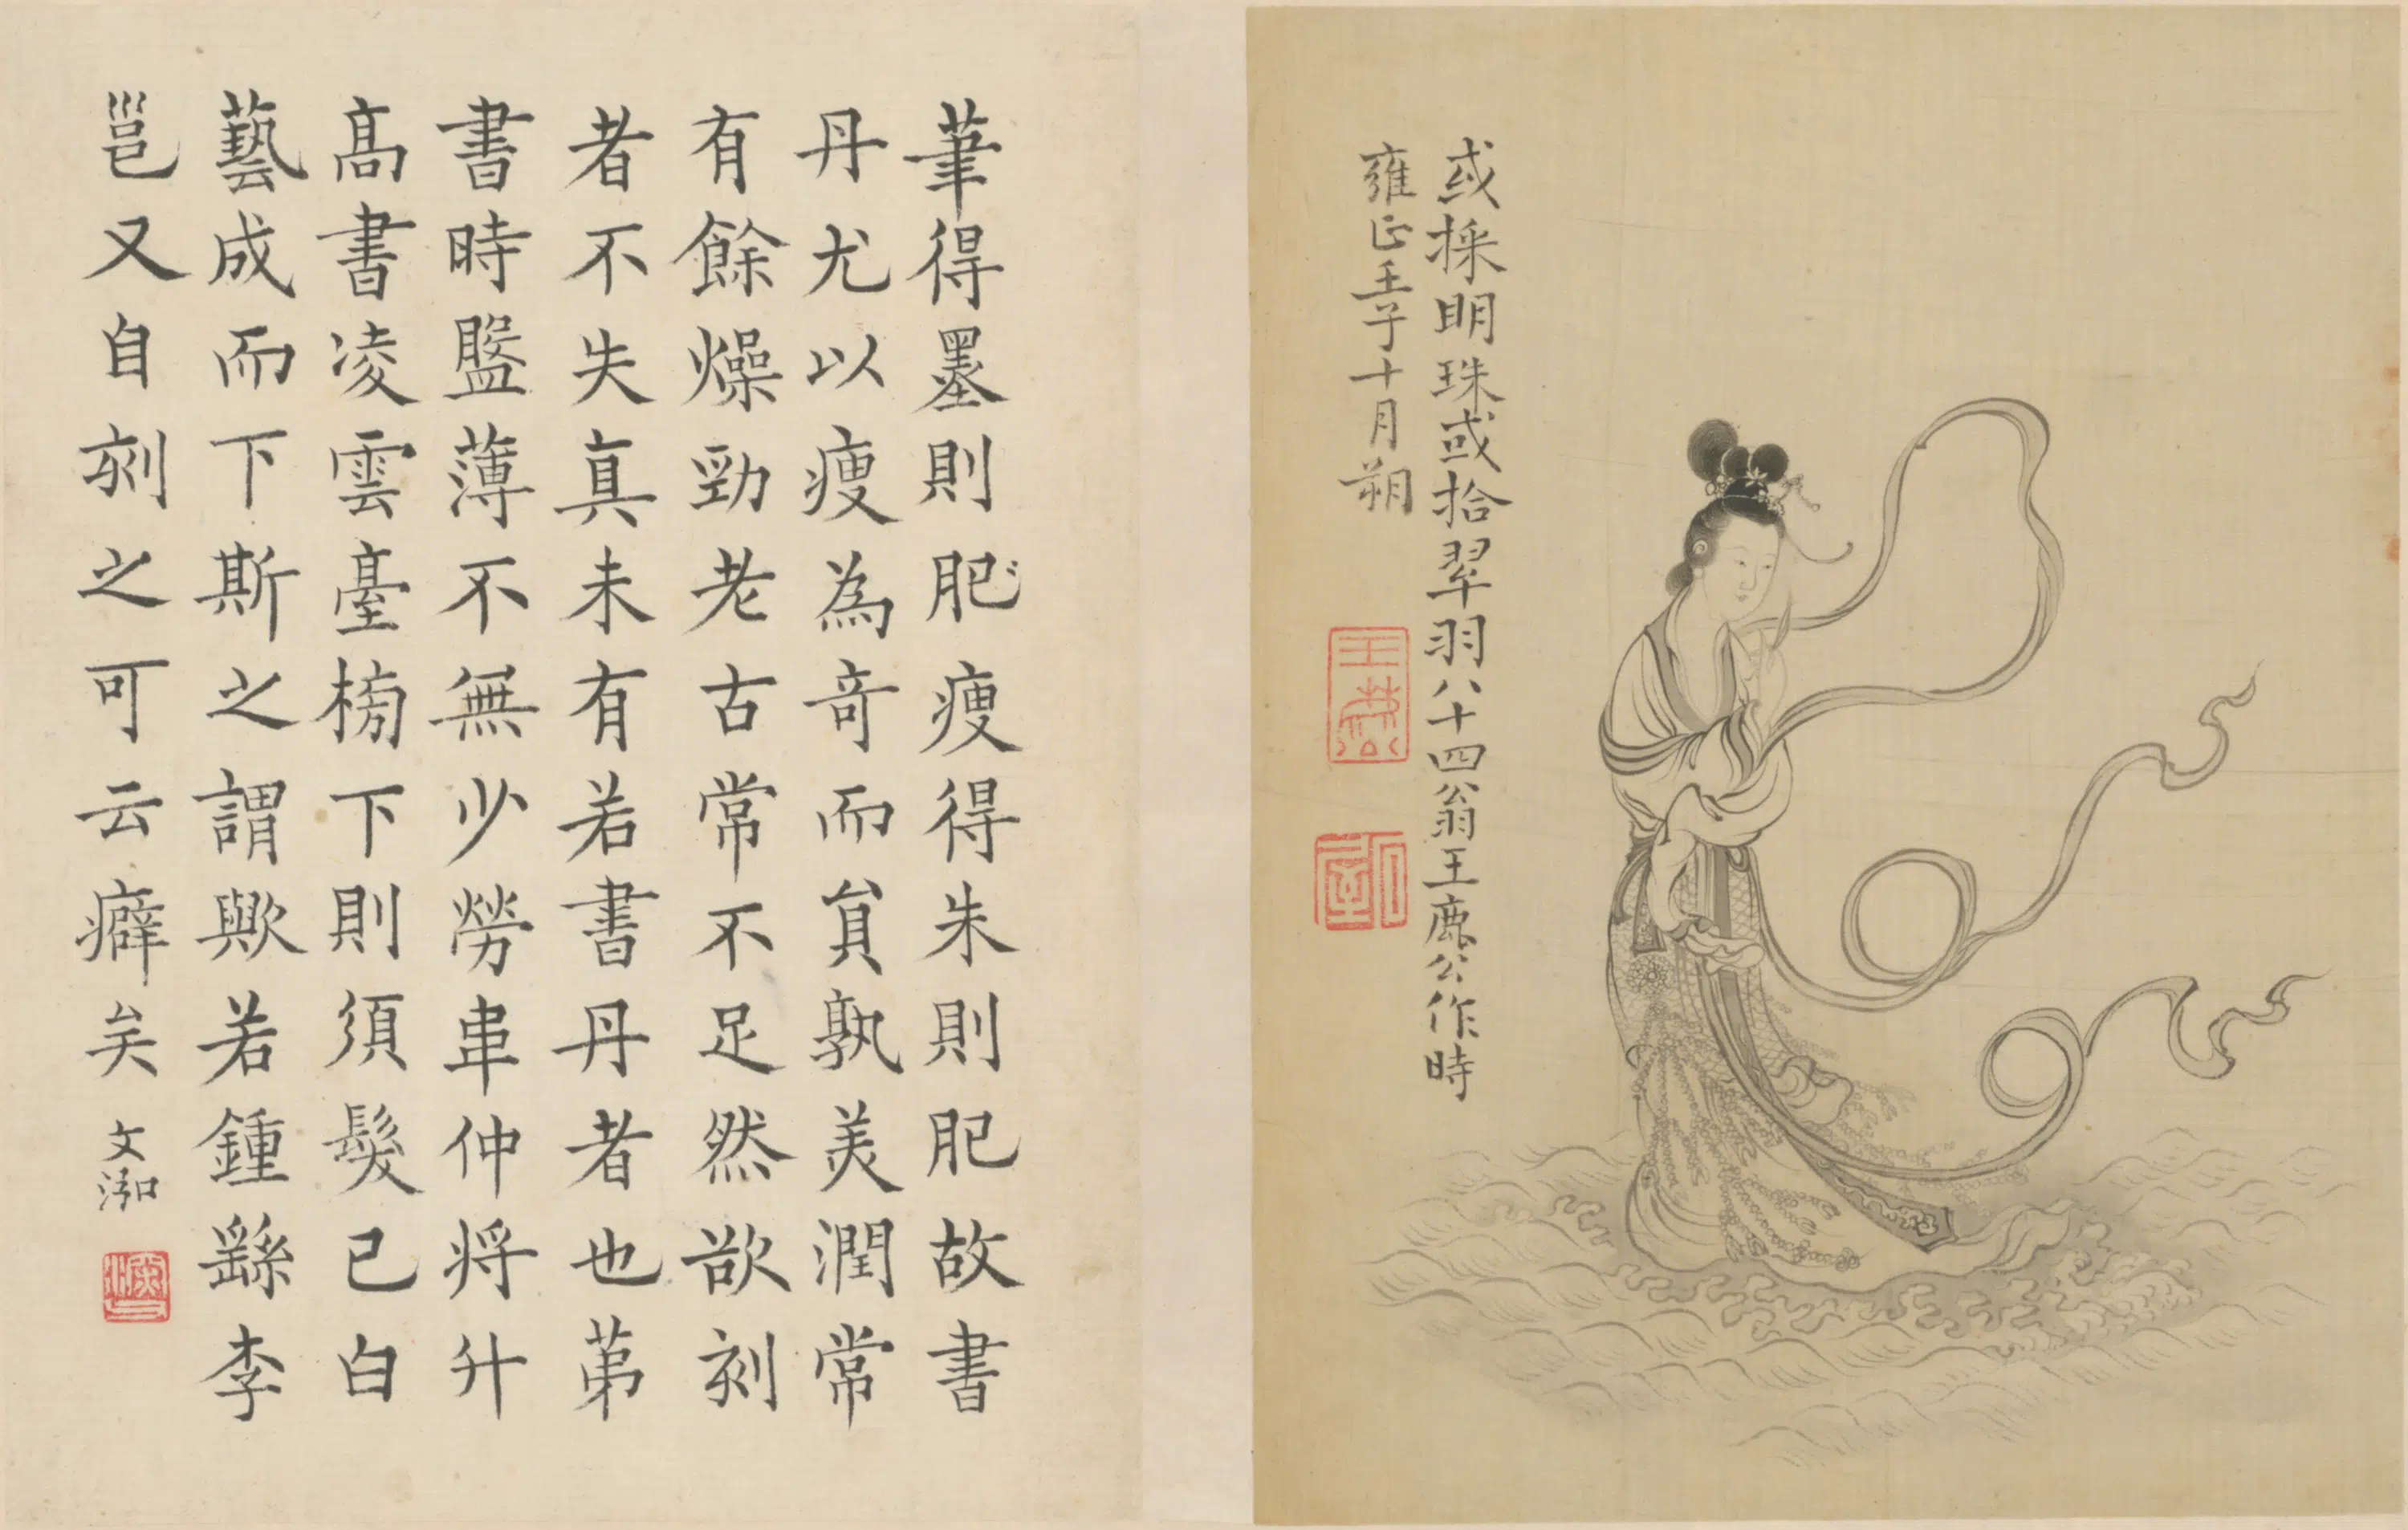 或採明珠或拾翠羽八十四翁王鹿公作時
雍正壬子十月朔
筆得墨則肥瘦得朱則肥故書
丹尤以瘦為奇而貟孰美潤常
有餘燥勁老古常不足然欲刻
者不失真未有若書丹者也苐
書時盤薄不無少勞韋仲將升
髙書凌雲臺榜下則須髮已白
藝成而下斯之謂歟若鍾繇李
邕又自刻之可云癖矣
文泓